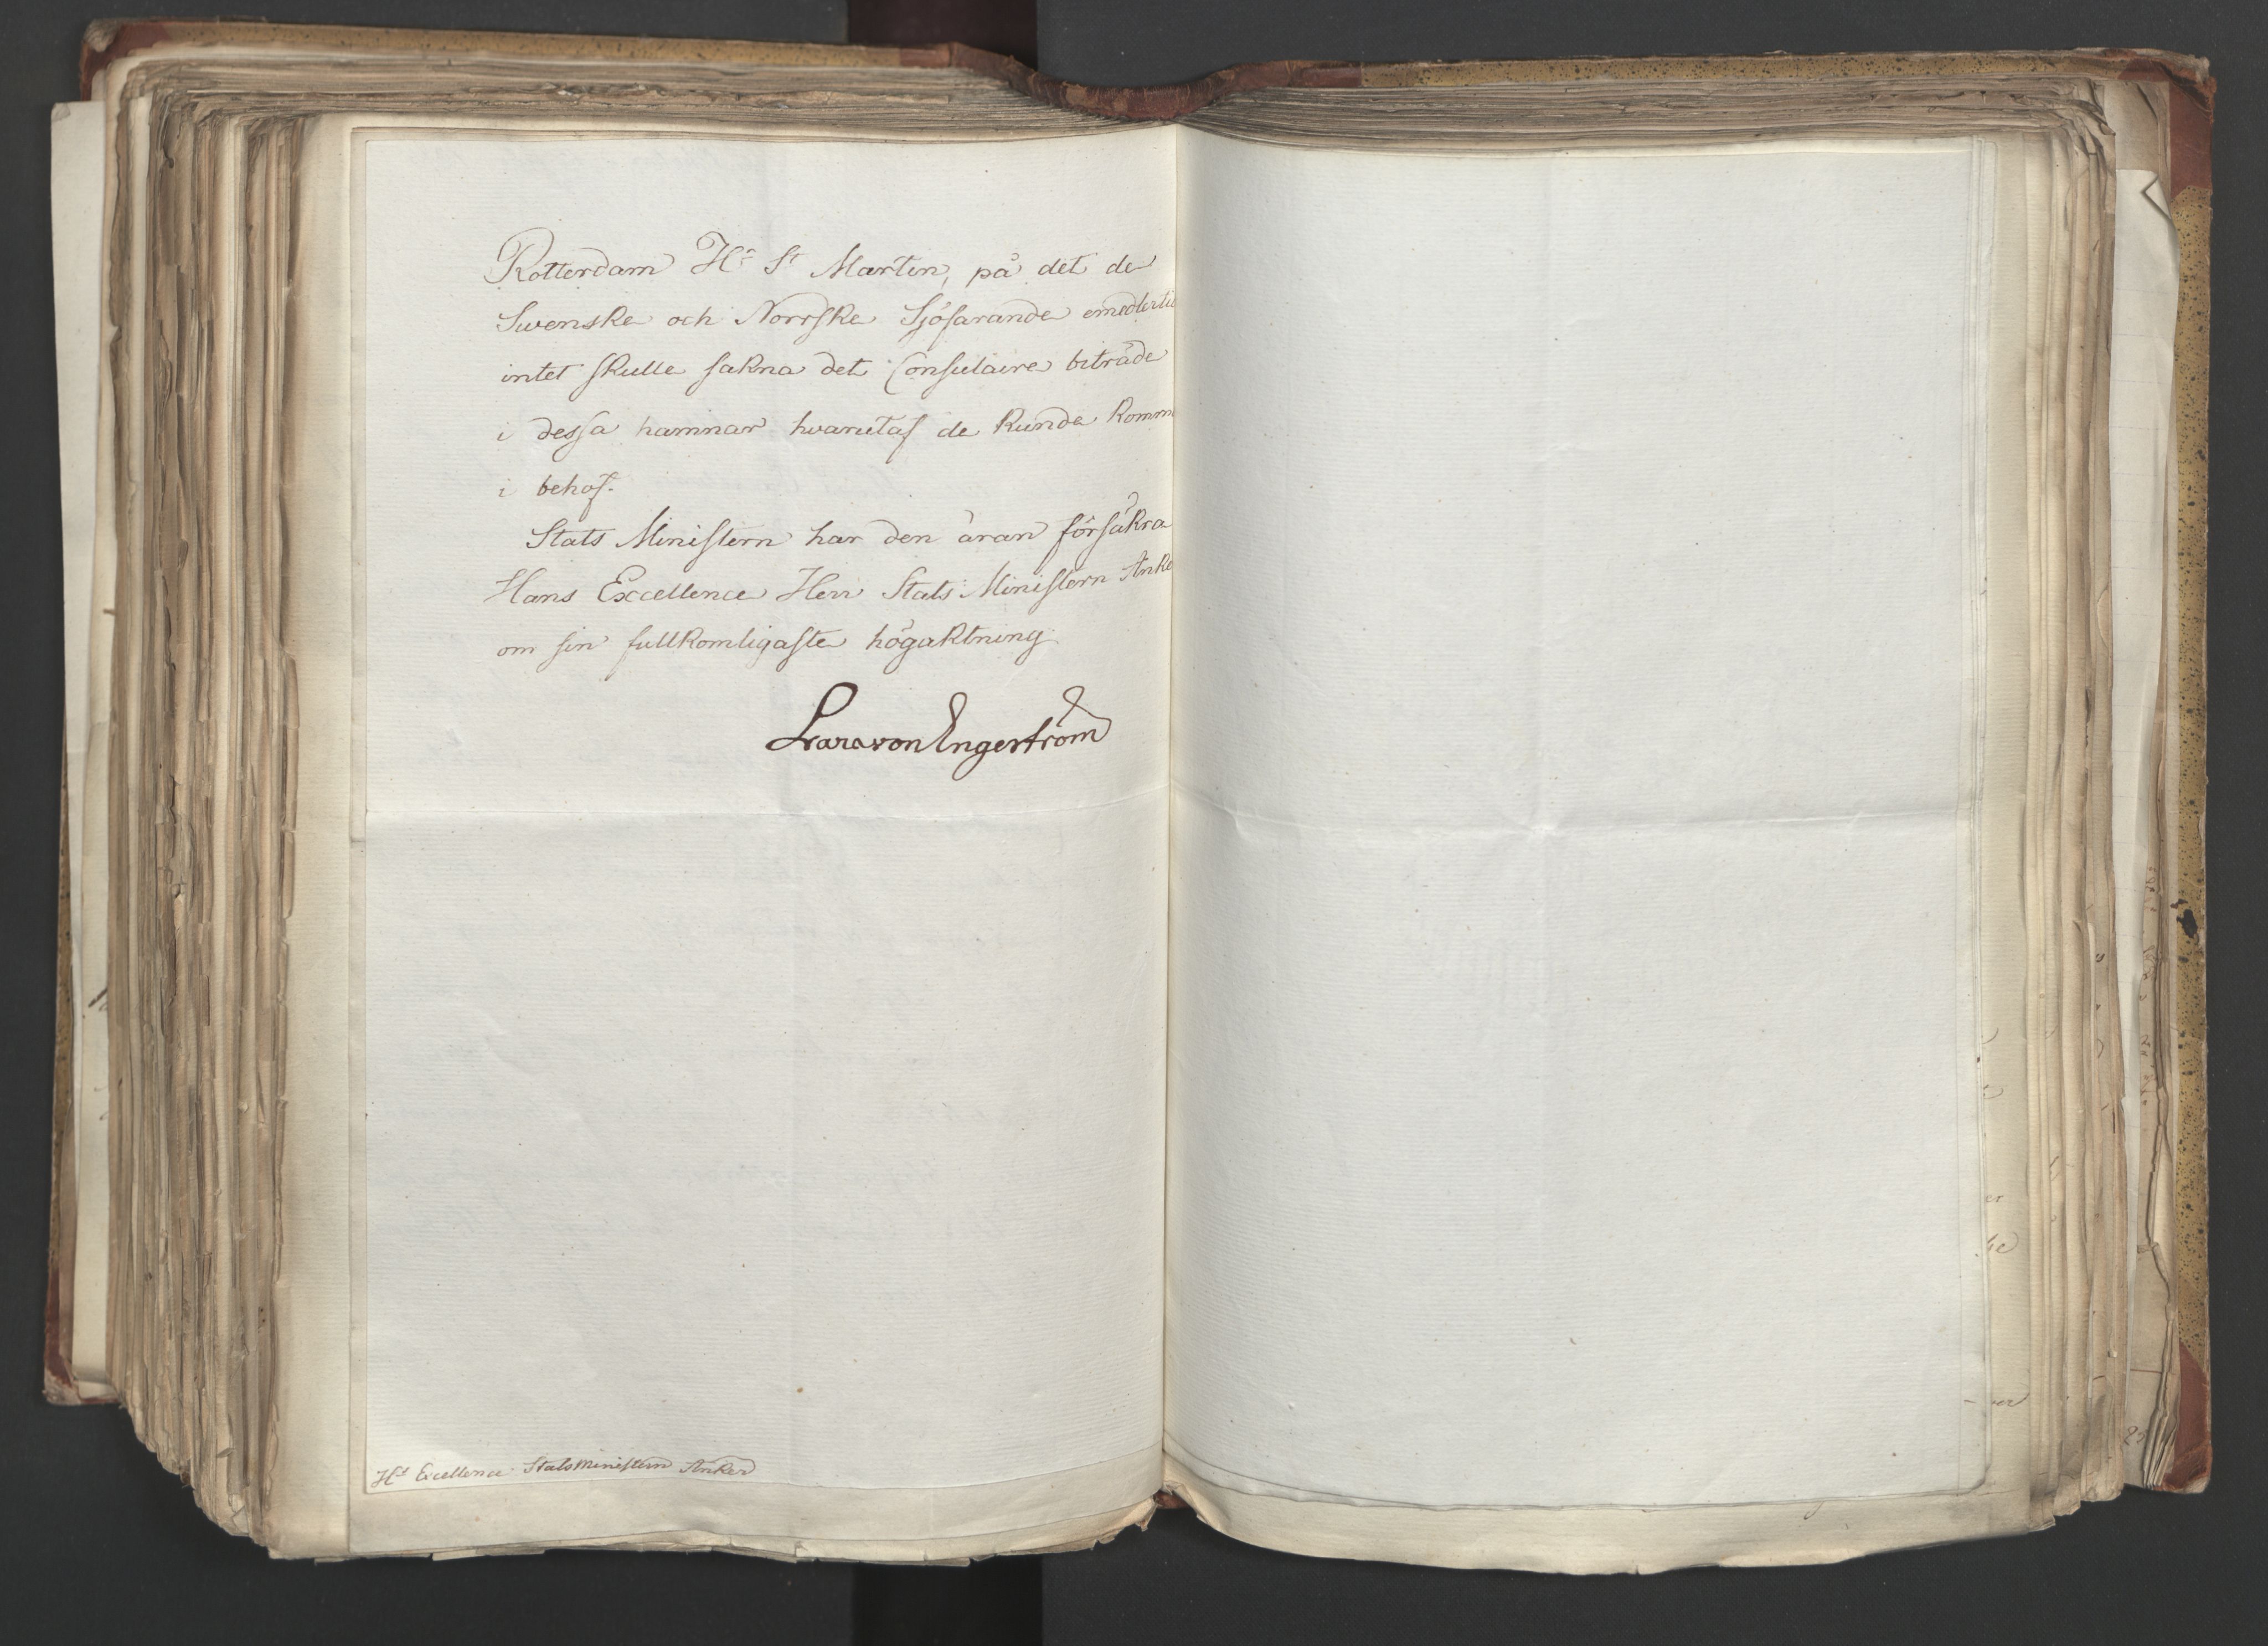 Rotterdam Hr St Martin, på det de
Swenske och Norrske Sjöfarande emedlertid
intet skulle sakna det Consulaire biträde
i dessa hamnar hvarutaf de kunde komma
i behof.
Stats Ministern har den äran försäkra
Hans Excellence Herr Stats Ministern Anker
om sin fullkomligaste högaktning
Lars von Engeström
Hs Excellence Statsministern Anker